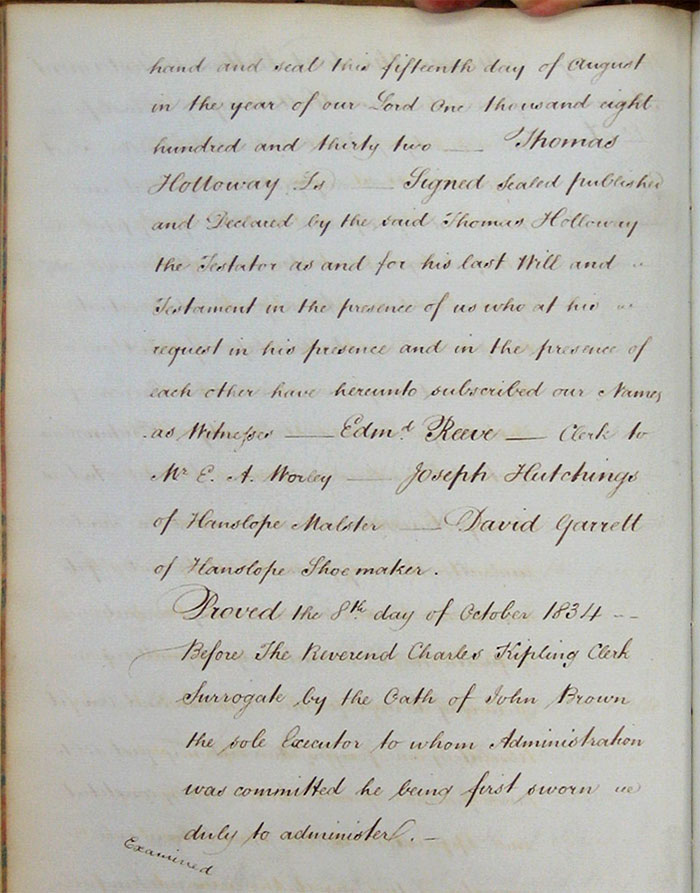 hand and seal this fifteenth day of August
in the year of our Lord One thousand eight
hundred and thirty two — Thomas
Holloway Ls — Signed Sealed published
and Declared by the said Thomas Holloway
the Testator as and for his last Will and
Testament in the presence of us who at his
request in his presence and in the presence of
each other have hereunto subscribed our Names
as Witnesses — Edmd Reeve — Clerk to
Mr E. A. Worley — Joseph Hutchings
of Hanslope Malster — David Garrett
of Hanslope Shoemaker.
Proved the 8th day of October 1834 --
Before The Reverend Charles Kipling Clerk
Surrogate by the Oath of John Brown
the sole Executor to whom Administration
was committed he being first sworn
duly to administer. —
Examined